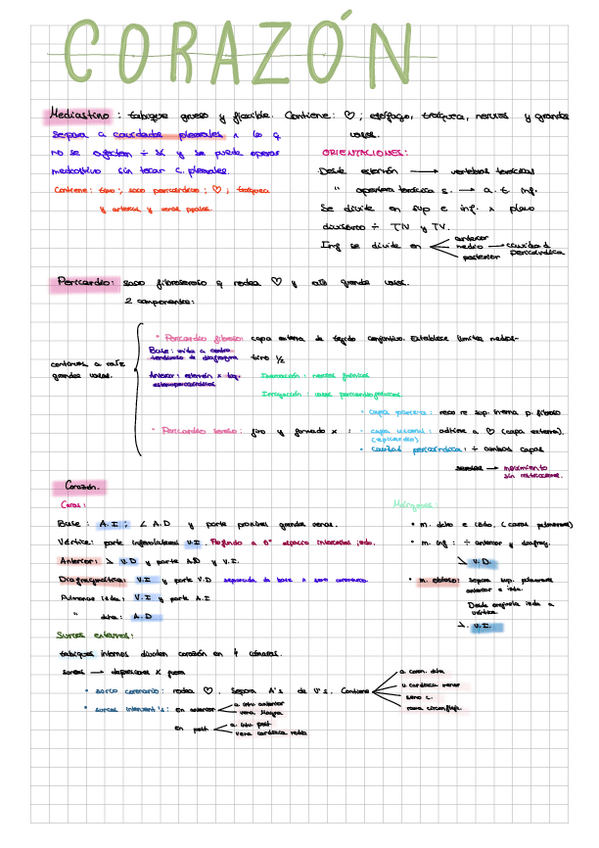 CORAZÓN
Mediastino: tabique grueso y flexible. Contiene: ♡; esófago, tráquea, nervios y grandes
vasos.
separa a cavidades pleurales x lo q
no se afectan ÷ sí y se puede operar
mediastino sin tocar c. pleurales.
Contiene: timo; saco pericárdico; ♡; tráquea
y arterias y venas ppales.
ORIENTACIONES:
Desde esternón → vertebras torácicas
" apertura torácica s. → a. t. inf.
Se divide en sup e inf. x plano
÷ TIV y TV.
Inf se divide en anterior
medio → cavidad pericárdica
posterior
Pericardio: saco fibroseroso q rodea ♡ y grandes vasos.
2 componentes:
continuos a raíz
grandes vasos.
• Pericardio fibroso: capa externa de tejido conjuntivo. Establece límites medias-
tino ½
Base: unida a centro
tendinoso de diafragma
Anterior: esternón x lig.
esternopericárdicos
Inervación: nervios frénicos
Irrigación: vasos pericardiofrénicos
• Pericardio seroso: fino y formado x:
• capa parietal: recu re sup. interna p. fibroso
• capa visceral: adhiere a ♡ (capa externa).
(epicardio)
• cavidad pericárdica: ÷ ambas capas
→ movimiento
sin restricciones.
Corazón.
Caras:
Base: A.I; ∠ A.D y parte proximal grandes venas.
Vértice: parte inferolateral V.I. Profundo a 5º espacio intercostal izdo.
Anterior: > V.D y parte AD y V.I.
Diafragmática: V.I y parte V.D separada de base x seno coronario.
Pulmonar izda: V.I y parte A.I
" dcha: A.D
Márgenes:
• m. dcho e izdo. (caras pulmonares)
• m. inf: ÷ anterior y diafrag.
> V.D.
• m. obtuso: separa sup. pulmonar
anterior e izda.
Desde orejuela izda a
vértice
> V.I.
Surcos externos:
tabiques internos dividen corazón en 4 cámaras.
surcos → depresiones x fuera
• surco coronario: rodea ♡. Separa A's de V's. Contiene
a. coron. dcha
v. cardiaca menor
seno c.
rama circunfleja.
• surcos intervent's: en anterior
a. intv anterior
vena magna
en post
a. intv post
vena cardiaca media